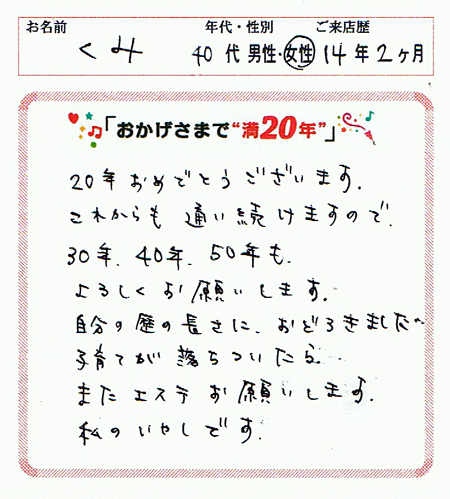 お名前 年代・性別 ご来店歴
くみ 40代 男性・女性 14年2ヶ月
「おかげさまで“満20年”」
20年おめでとうございます。
これからも 通い続けますので、
30年、40年、50年も、
よろしくお願いします。
自分の歴の長さに、おどろきました
子育てが落ちついたら
またエステお願いします。
私のいやしです。